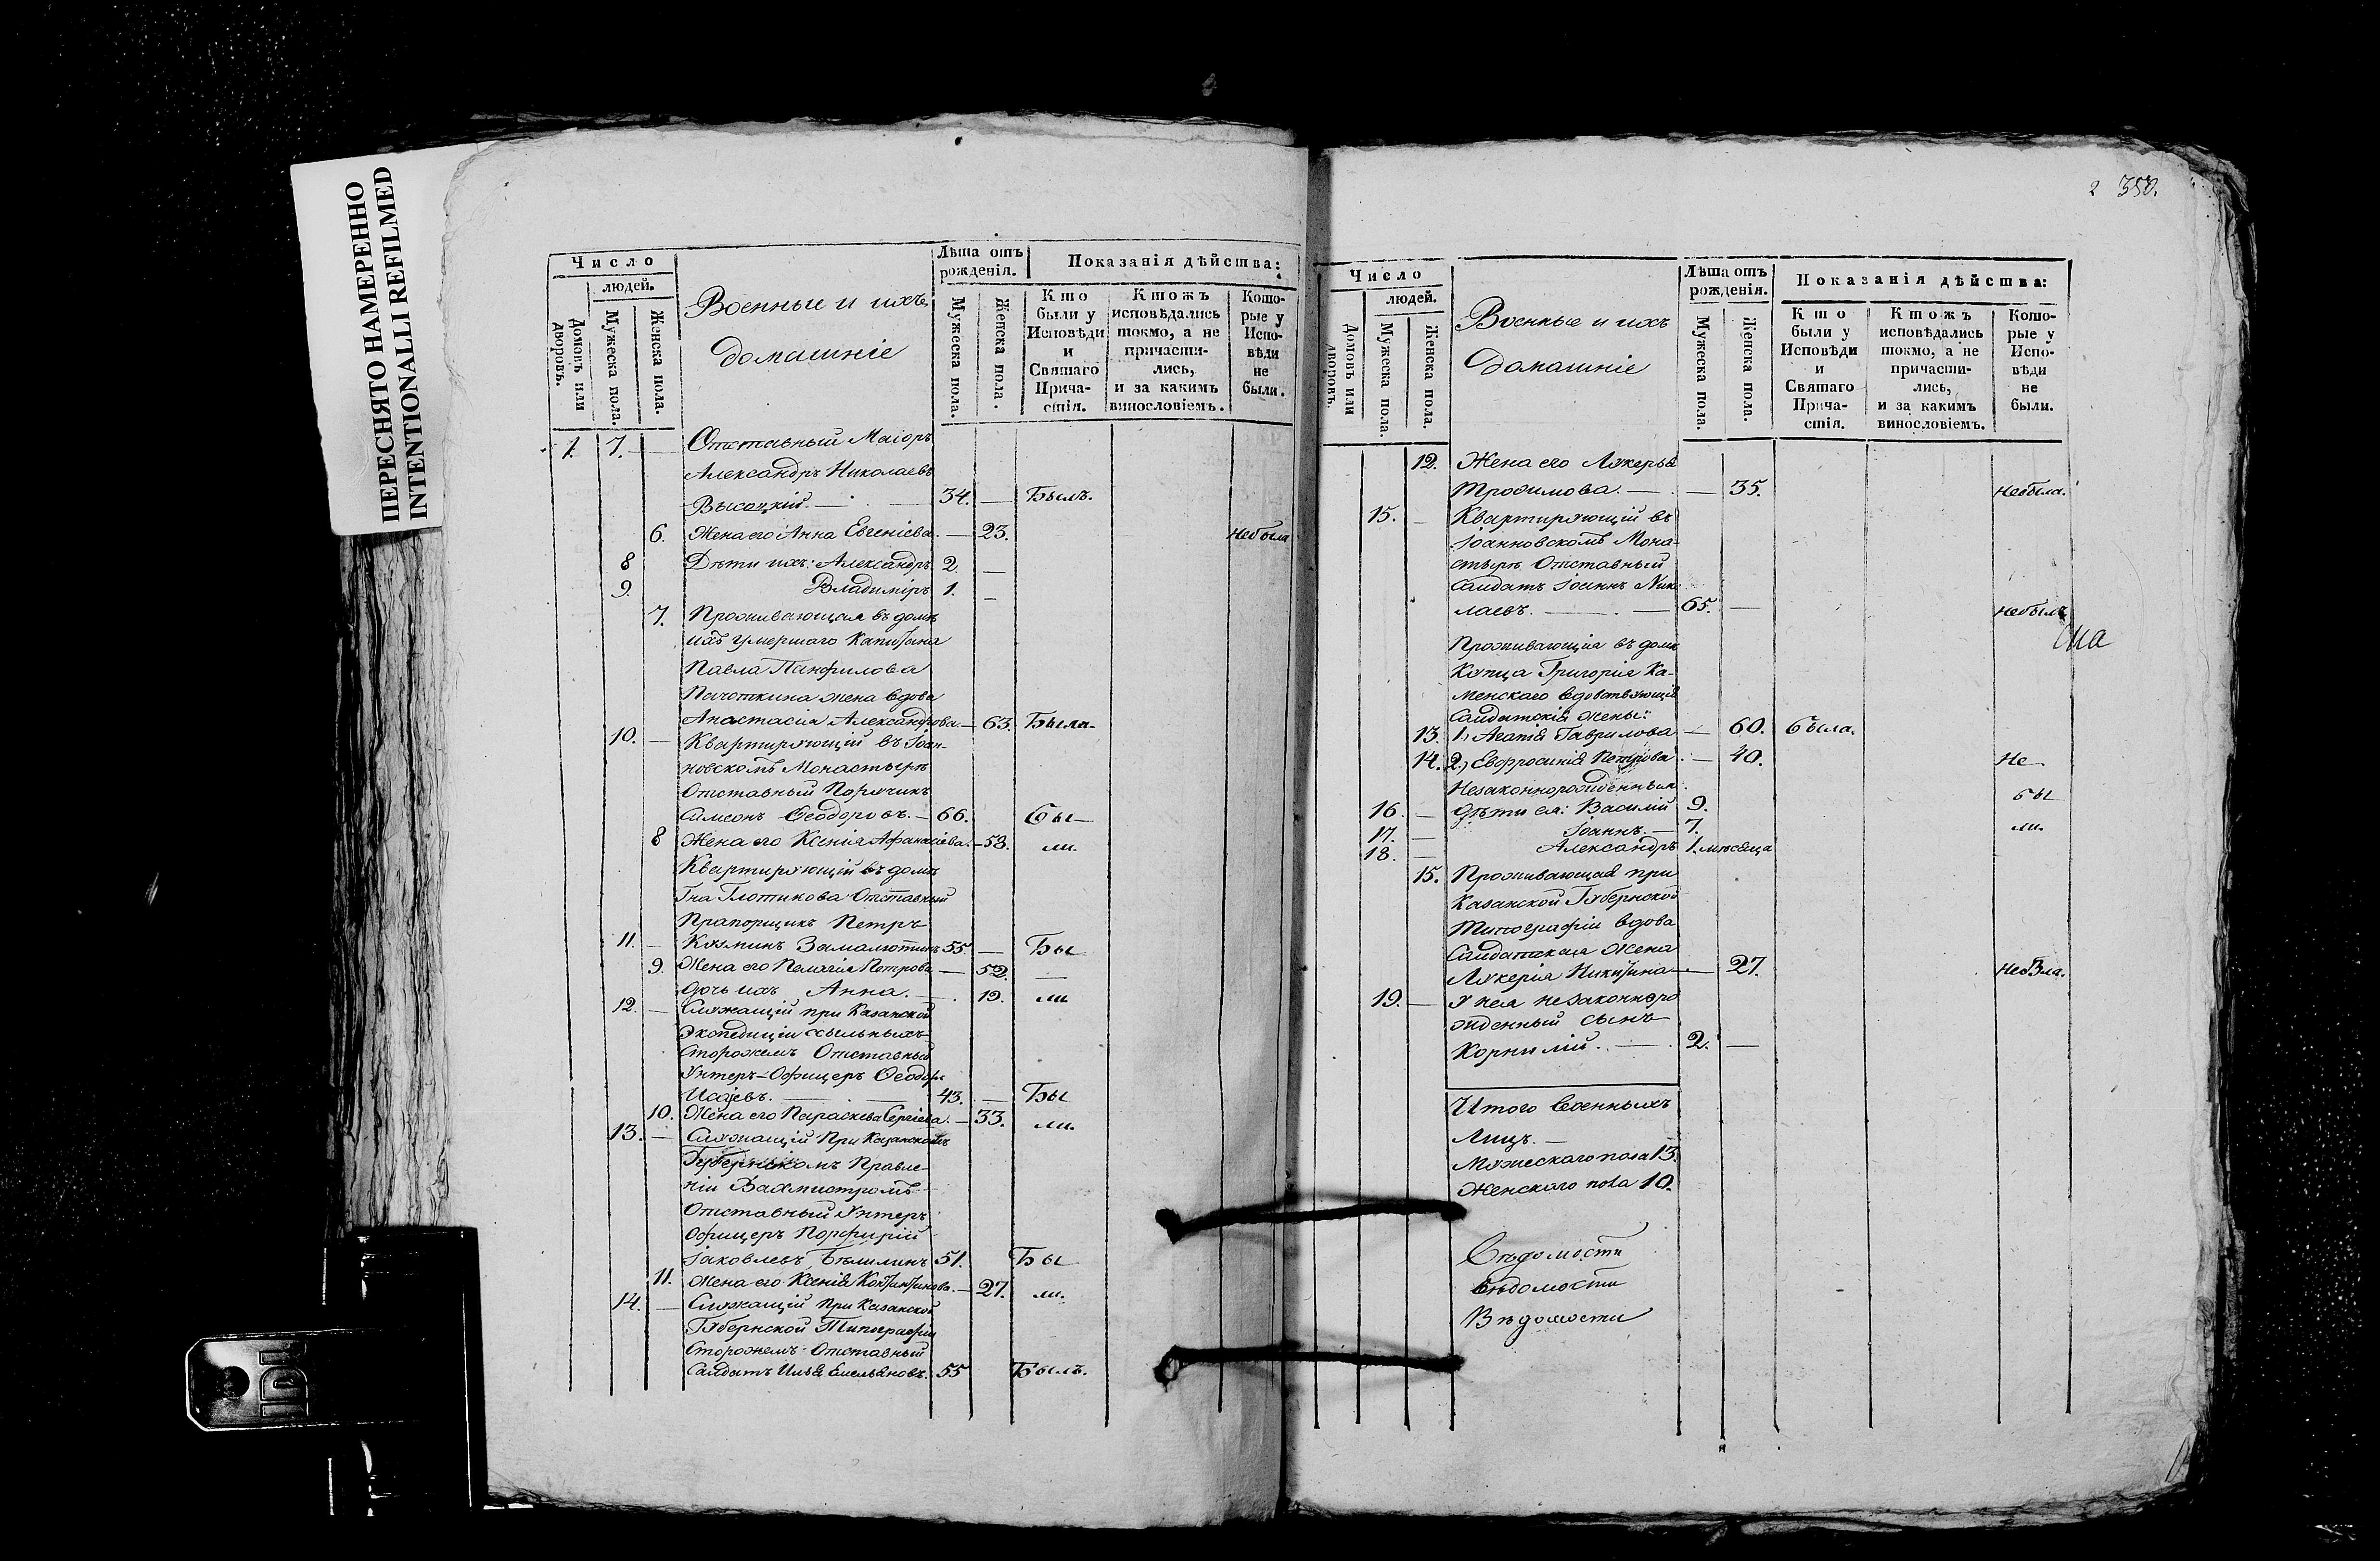 ПЕРЕСНЯТО НАМЕРЕННО
INTENTIONALLI REFILMED
Число
людей.
Домовъ или дворовъ.
Мужеска пола.
Женска пола.
Военные и ихъ
домашніе
Лѣта отъ рожденія.
Мужеска пола.
Женска пола.
Показанія дѣйства:
Кто были у Исповѣди и Святаго Прича-стія.
Ктожъ исповѣдались токмо, а не причасти-лись, и за какимъ винословіемъ.
Кото-рые у Испо-вѣди не были.
1. 7. — Отставный Маіоръ
Александръ Николаевъ
Высоцкій. — 34. — Былъ.
6. Жена его Анна Евгеніева. — 23. Небыла
8 Дѣти ихъ: Александръ 2. —
9. Владиміръ 1. —
7. Проживающая въ домѣ
ихъ умершаго Капитана
Павла Панфилова
жена вдова
Анастасія Александрова. — 63. Была.
10. — Квартирующій въ Іоан-
новскомъ Монастырѣ
Отставный Поручикъ
Симеонъ Ѳеодоровъ. — 66. Бы—
8 Жена его Ксенія Афанасіева. — 58. ли.
Квартирующій въ домѣ
Гна Глотикова Отставный
Прапорщикъ Петръ
11. — Кузминъ Замалютинъ 55. — Бы
9. Жена его Пелагія Петрова — 52. —
дочь ихъ Анна. — 19. ли
12. — Служащій при Казанской
Экспедиціи ссыльныхъ
Сторожемъ Отставный
Унтеръ-Офицеръ Ѳеодоръ
Исаевъ. — 43. — Бы
10. Жена его Параскева Сергіева. — 33. ли.
13. — Служащій при Казанскомъ
Губернскомъ Правле-
ніи Вахмистромъ
Отставный Унтеръ
Офицеръ Порфирій
Іаковлевъ Бѣлилинъ 51. Бы
11. Жена его Ксенія Контантинова. — 27. ли.
14. — Служащій при Казанской
Губернской Типографіи
Сторожемъ Отставный
Салдатъ Илья Емельяновъ. 55 Былъ.
2 350.
Число
людей.
Домовъ или дворовъ.
Мужеска пола.
Женска пола.
Военные и ихъ
домашніе
Лѣта отъ рожденія.
Мужеска пола.
Женска пола.
Показанія дѣйства:
Кто были у Исповѣди и Святаго Прича-стія.
Ктожъ исповѣдались токмо, а не причасти-лись, и за какимъ винословіемъ.
Кото-рые у Испо-вѣди не были.
12. Жена его Лукерья
Трофимова. — — 35. Небыла.
15. — Квартирующій въ
Іоанновскомъ Мона-
стырѣ Отставный
Салдатъ Іоаннъ Нико
лаевъ. — 65. — Небылъ
Проживающія въ домѣ
Купца Григорія Ка-
менскаго вдовствующія
Салдатскія жены:
13. 1.) Агапія Гаврилова — 60. была.
14. 2.) Евфросинія Петрова — 40. Не
Незаконнорожденныя
16. — дѣти ея: Василій 9. бы
17. — Іоаннъ. — 7. ли.
18. — Александръ 1. мѣсяца
15. Проживающая при
Казанской Губернской
Типографіи вдова
Салдатская Жена
Лукерія Никитина — 27. Небыла.
19. — У нея незаконноро
жденный сынъ
Корнилій. — 2. —
Итого Военныхъ
Лицъ. —
Мужескаго пола 13.
Женскаго пола 10.
Вѣдомости
Вѣдомости
Вѣдомости